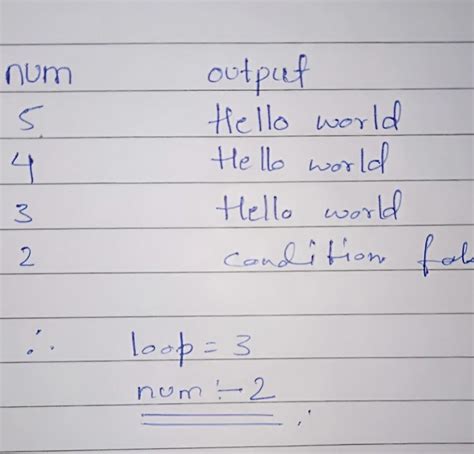 num output
5 Hello world
4 Hello world
3 Hello world
2 condition
∴ loop = 3
num :- 2